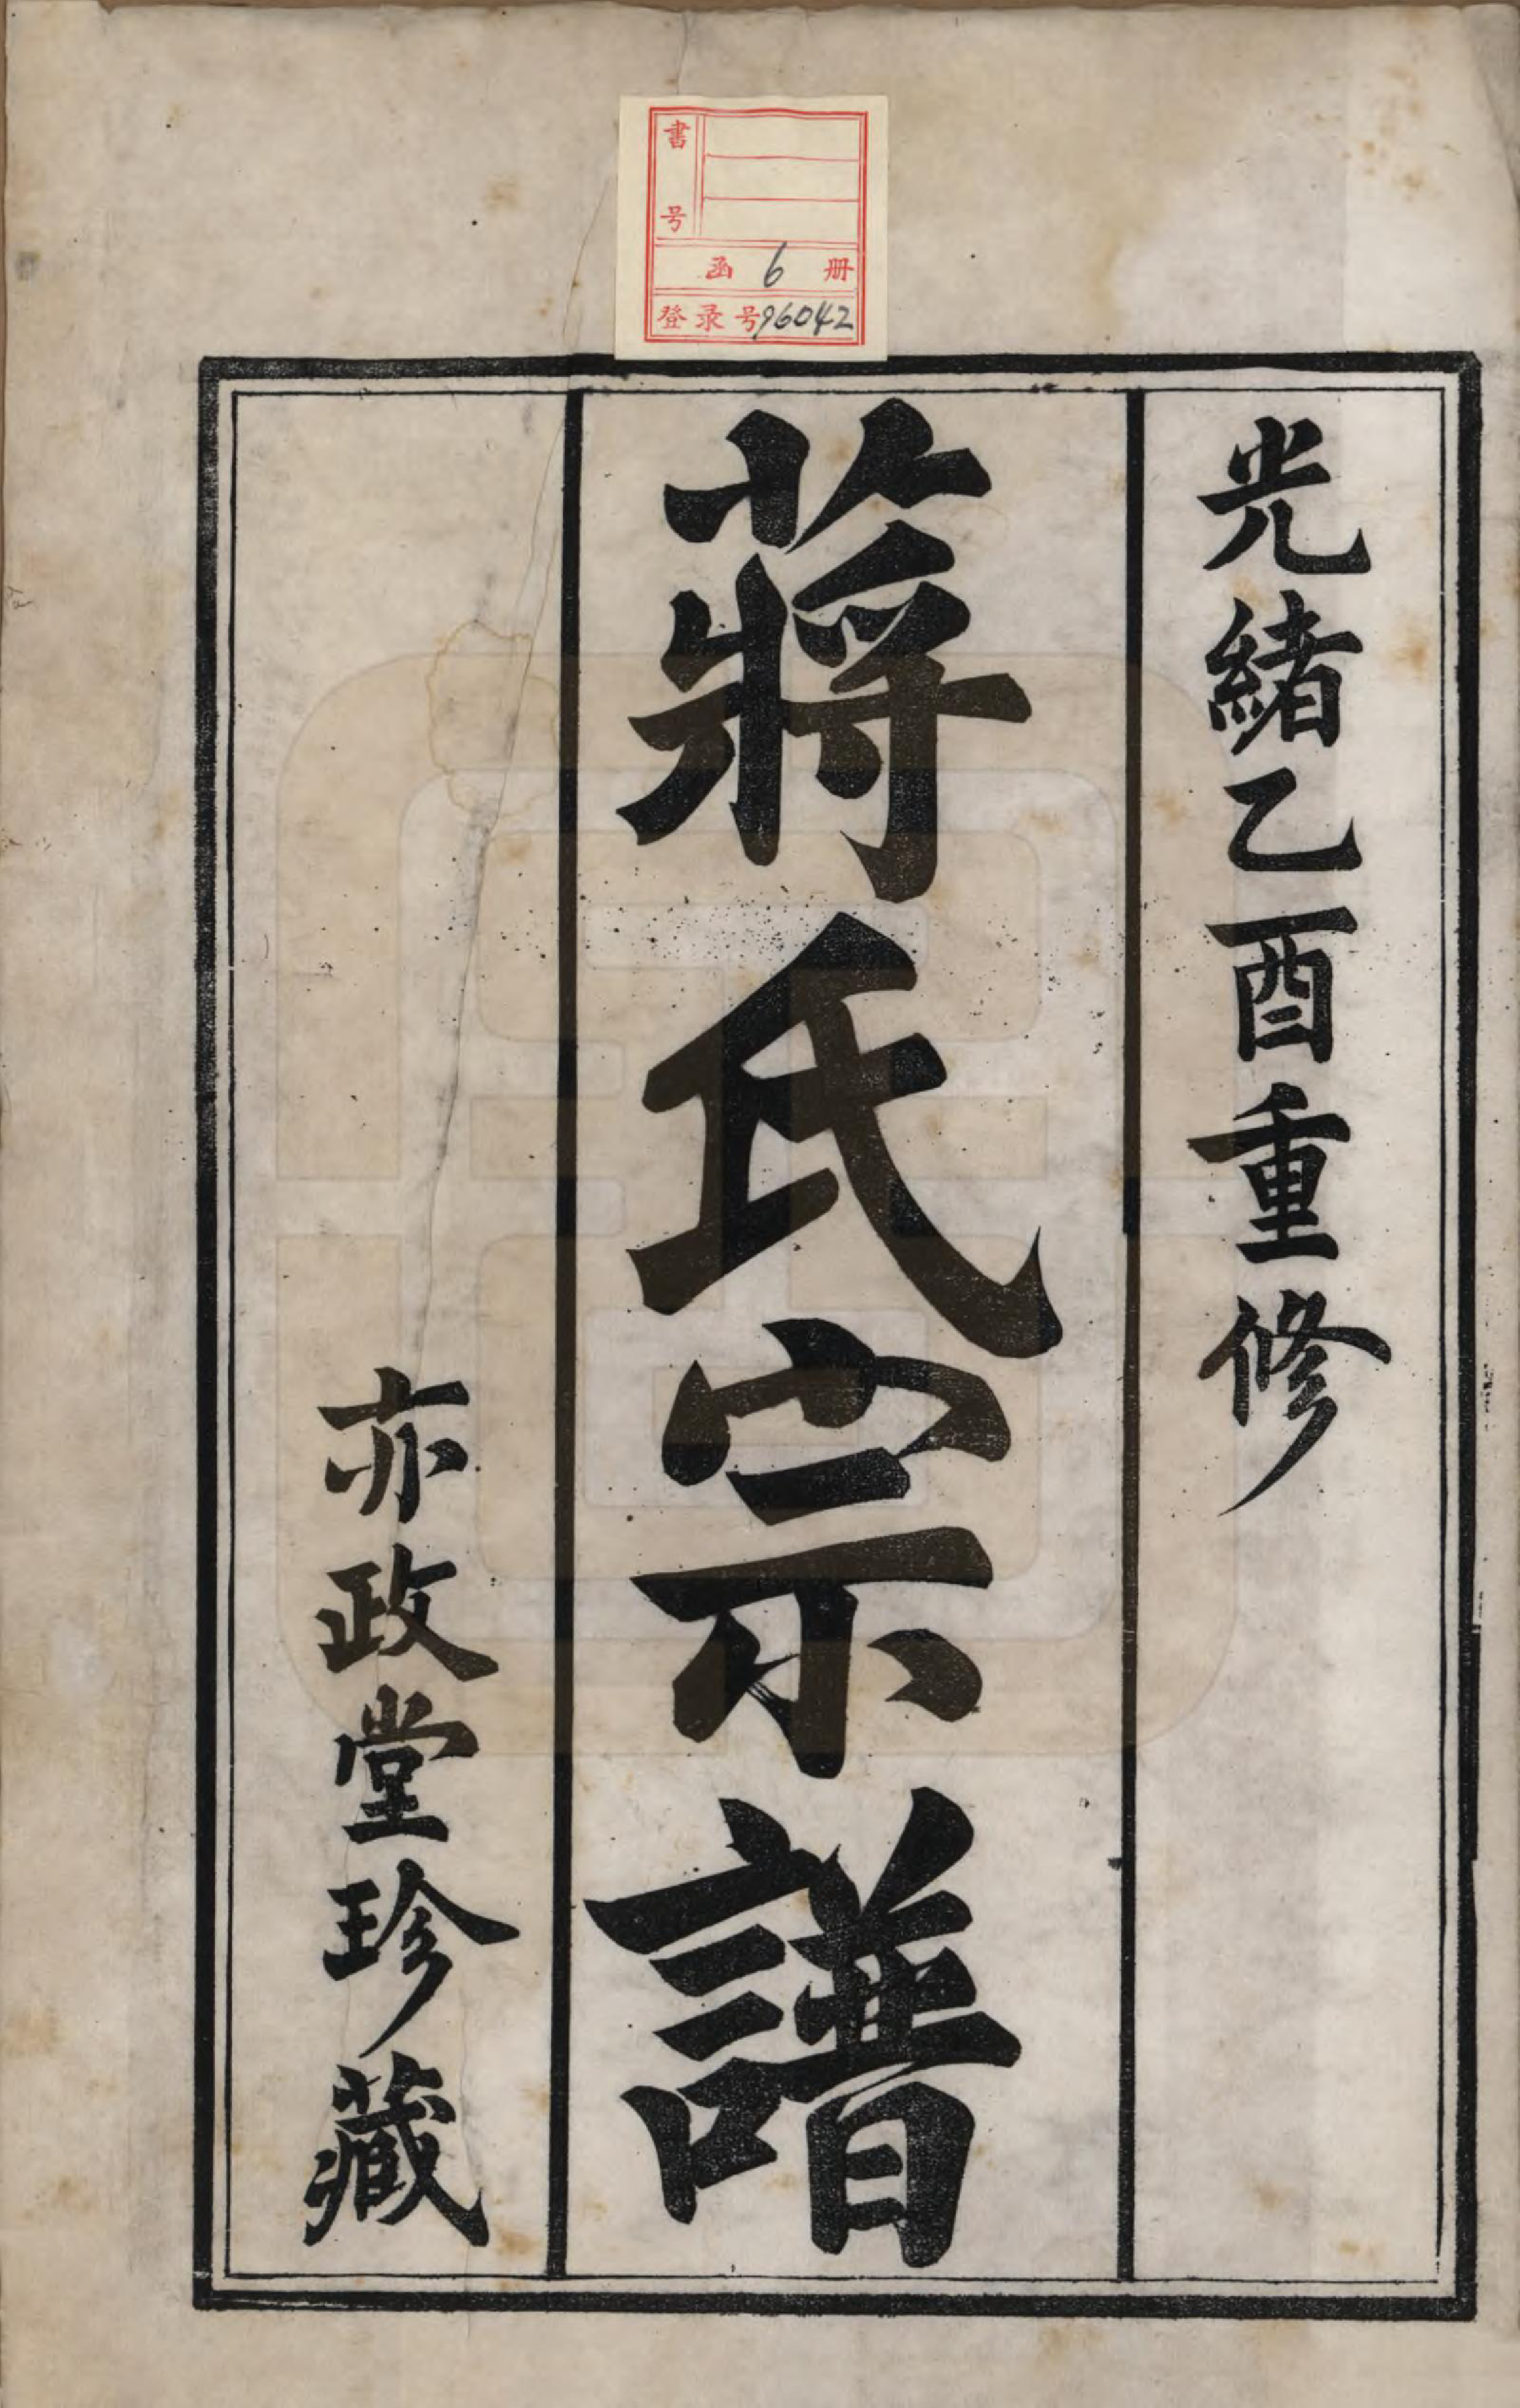 書号
函 6 册
登录号96042
光緒乙酉重修
蔣氏宗譜
亦政堂珍藏